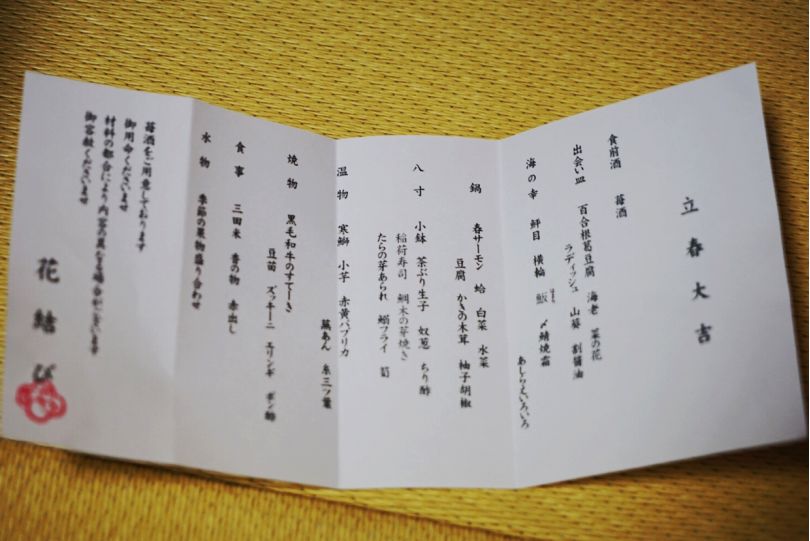 立春大吉
食前酒 苺酒
出会い皿 百合根葛豆腐 海老 菜の花
ラディッシュ 山葵 割醤油
海の幸 鮃目 横輪 〆鯖焼霜
あしらえいろいろ
鍋 春サーモン 蛤 白菜 水菜
豆腐 かきの木茸 柚子胡椒
八寸 小鉢 茶ぶり生子 奴葱 ちり酢
稲荷寿司 鯛木の芽焼き
たらの芽あられ 鰯フライ 筍
温物 寒鰤 小芋 赤黄パプリカ
蕪あん 糸三ツ葉
焼物 黒毛和牛のすてーき
豆苗 ズッキーニ エリンギ ポン酢
食事 三田米 香の物 赤出し
水物 季節の果物盛り合わせ
苺酒をご用意しております
御用命くださいませ
材料の都合により内容の異なる場合がございます
御容赦くださいませ
花結び